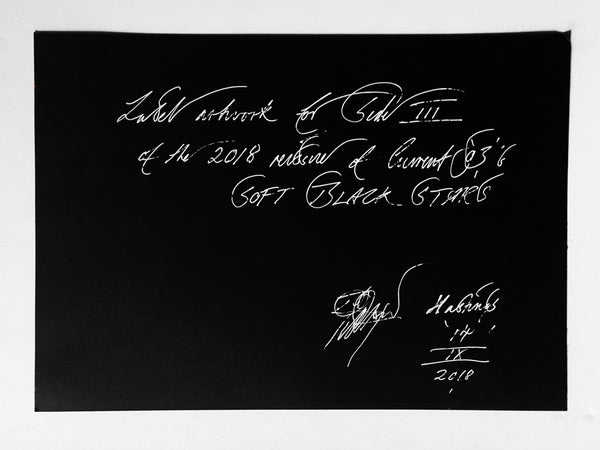 Label artwork for Side III
of the 2018 reissue of Current 93's
SOFT BLACK STARS
Hastings
14
IX
2018